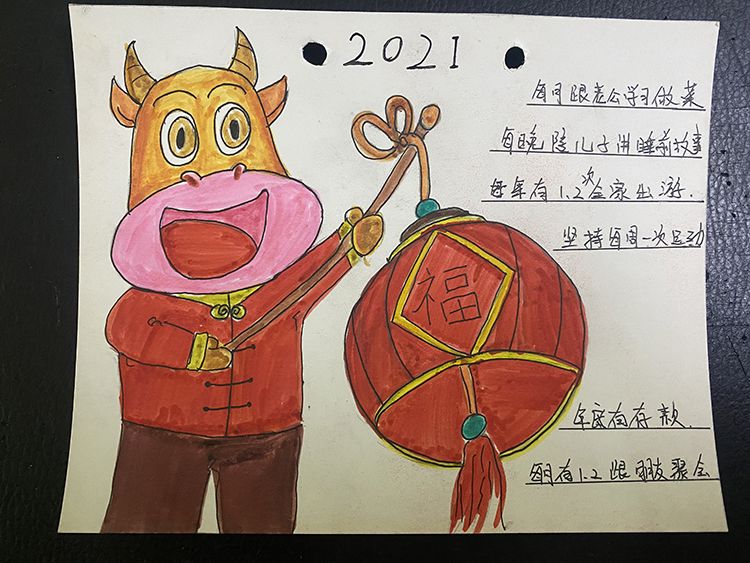 2021
每月跟老公学习做菜
每晚陪儿子讲睡前故事
每年有1.2次全家出游.
坚持每周一次运动
福
年底有存款.
每月有1.2跟朋友聚会